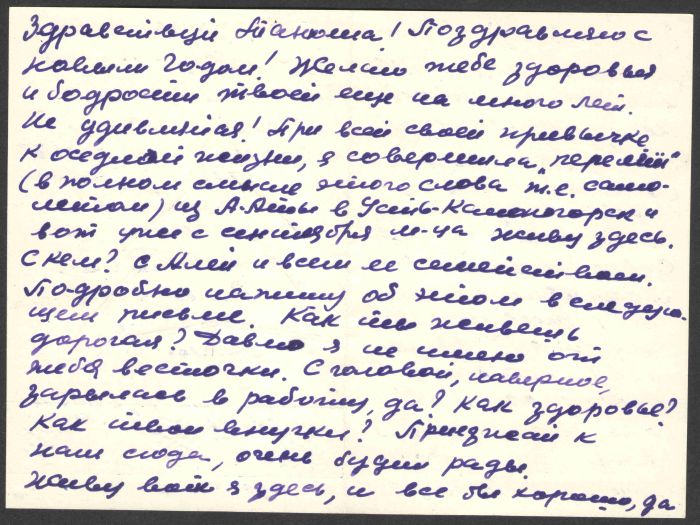 Здравствуй Танюша! Поздравляю с
новым годом! Желаю тебе здоровья
и бодрости твоей еще на много лет.
Не удивляйся! При всей своей привычке
к оседлой жизни, я совершила "перелёт"
(в полном смысле этого слова т.е. само-
летом) из А-Аты в Усть-Каменогорск и
вот уже с сентября м-ца живу здесь.
С кем? с Алей и всем ее семейством.
Подробно напишу об этом в следую-
щем письме. Как ты живешь
дорогая? Давно я не имею от
тебя весточки. С головой, наверное,
зарылась в работу, да? Как здоровье?
Как твои внучки? Приезжай к
нам сюда, очень будем рады.
Живу вот я здесь, и все бы хорошо, да